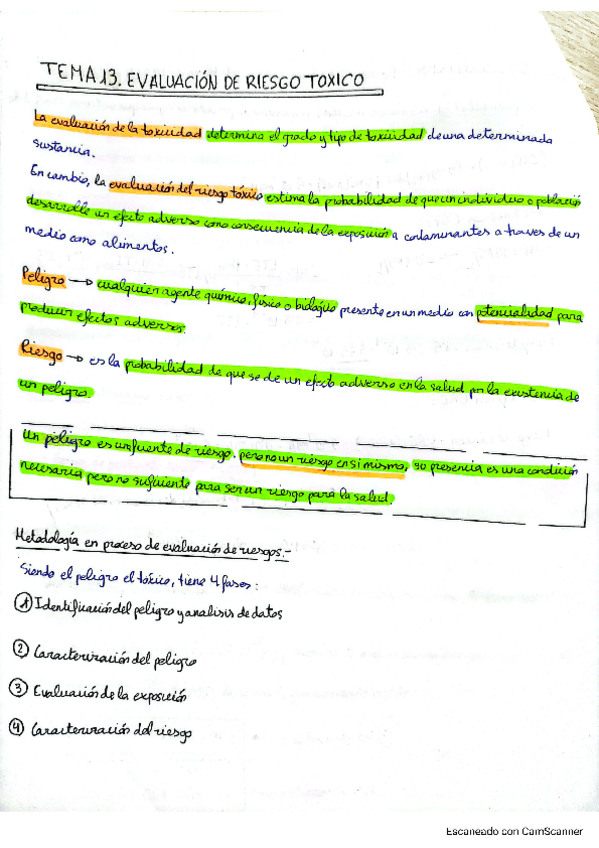 TEMA 13. EVALUACIÓN DE RIESGO TOXICO
La evaluación de la toxicidad determina el grado y tipo de toxicidad de una determinada
sustancia.
En cambio, la evaluación del riesgo tóxico estima la probabilidad de que un individuo o población
desarrolle un efecto adverso como consecuencia de la exposición a contaminantes a traves de un
medio como alimentos.
Peligro → cualquier agente químico, físico o biológico presente en un medio con potencialidad para
producir efectos adversos.
Riesgo → es la probabilidad de que se de un efecto adverso en la salud por la existencia de
un peligro.
Un peligro es una fuente de riesgo, pero no un riesgo en si mismo, su presencia es una condición
necesaria pero no suficiente para ser un riesgo para la salud.
Metodología en proceso de evaluación de riesgos.-
Siendo el peligro el tóxico, tiene 4 fases:
1 Identificación del peligro y analisis de datos
2 Caracterización del peligro
3 Evaluación de la exposición
4 Caracterización del riesgo
Escaneado con CamScanner